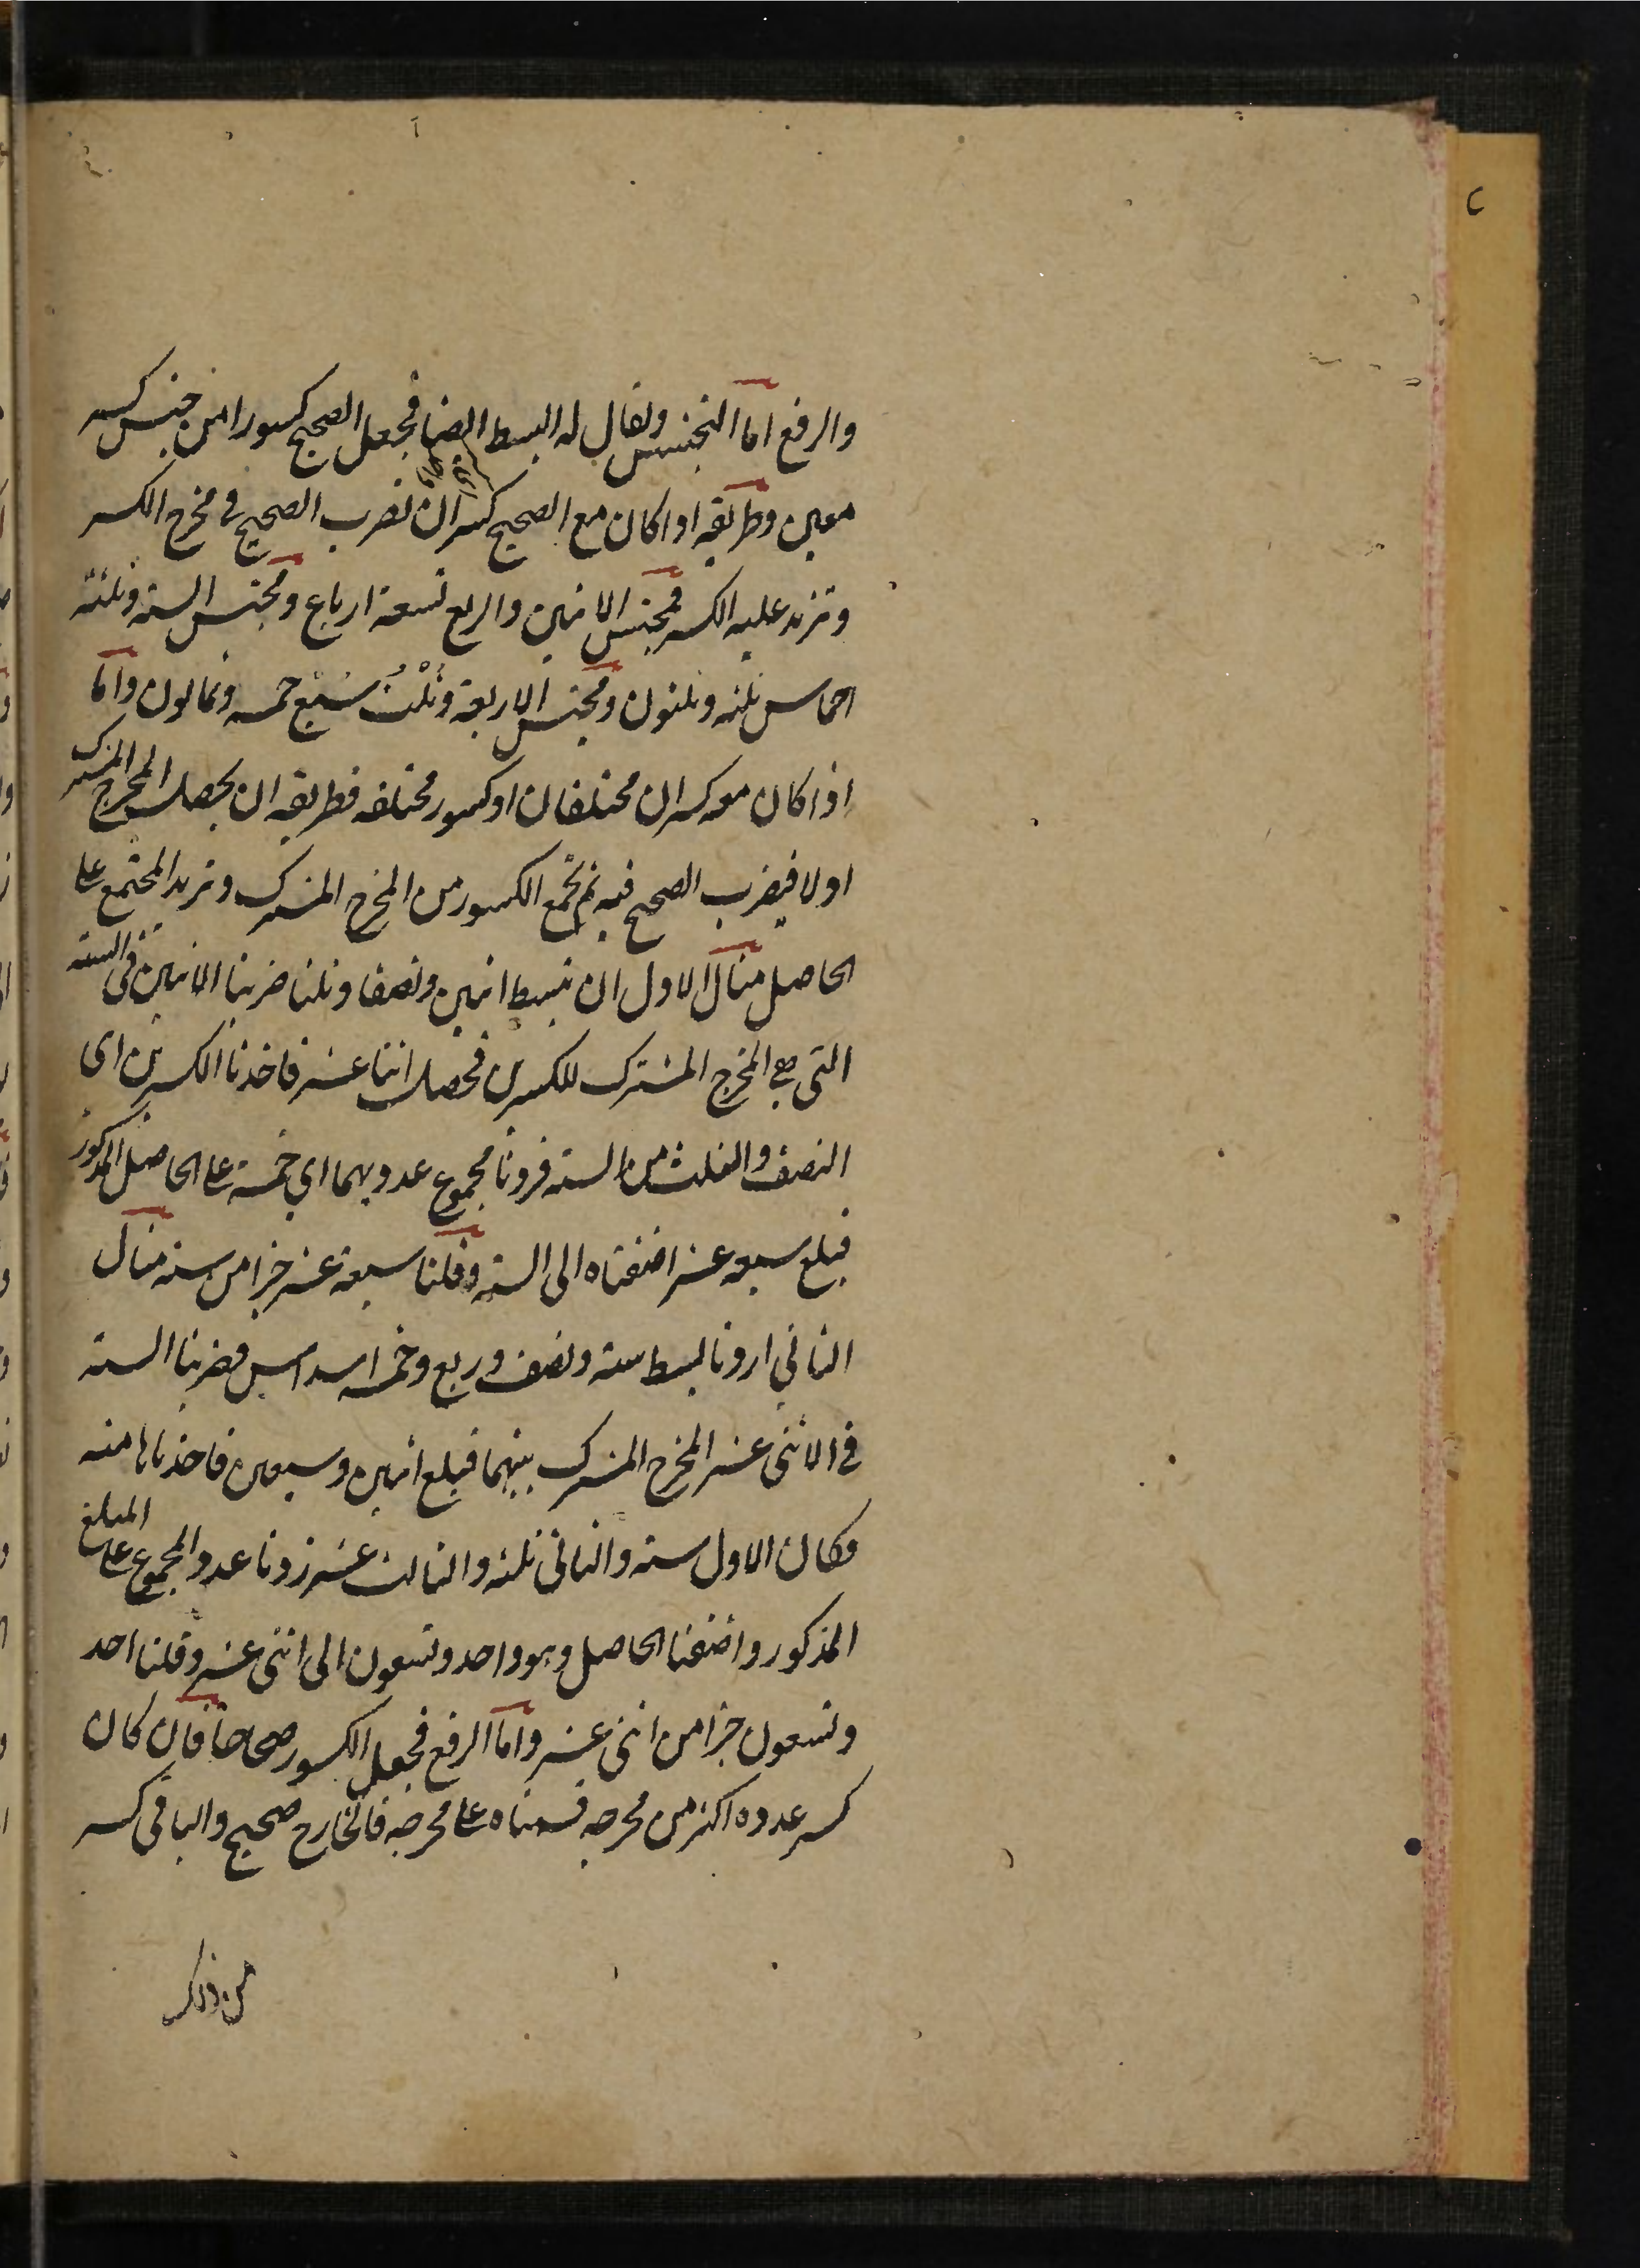 والرفع اما التجنيس ويقال له البسط ايضا فجعل الصحيح كسورا من جنس كسر
معين وطريقه اذا كان مع الصحيح كسر ان نضرب الصحيح في مخرج الكسر
وتزيد عليه الكسر فمجنس الاثنين والربع تسعة ارباع ومجنس الستة وثلثة
اخماس ثلثه وثلثون ومجنس الاربعة وثلث سبع خمسه وثمانون واما
اذا كان معه كسران مختلفان او كسور مختلفه فطريقه ان يحصل المخرج المشترك
اولا فيضرب الصحيح فيه ثم تجمع الكسور من المخرج المشترك وتزيد المجتمع على
الحاصل مثال الاول ان نبسط اثنين ونصفا وثلثا ضربنا الاثنين في الستة
التي هي المخرج المشترك للكسرين فحصل اثنا عشر فاخذنا الكسرين اي
النصف والثلث من الستة فزدنا مجموع عدديهما اي خمسة على الحاصل المذكور
فبلغ سبعه عشر اضفناه الى الستة وقلنا سبعة عشر جزا من ستة مثال
الثاني اردنا بسط ستة ونصف وربع وخمسة اسداس فضربنا الستة
في الاثنى عشر المخرج المشترك بينهما فبلغ اثنين وسبعين فاخذناها منه
فكان الاول ستة والثاني ثلثه والثالث عشر زدنا عدد المجموع على المبلغ
المذكور واضفنا الحاصل وهو واحد وتسعون الى اثنى عشر وقلنا احد
وتسعون جزا من اثنى عشر واما الرفع فجعل الكسور صحاحا فان كان
كسر عدده اكثر من مخرجه قسمناه على مخرجه فالخارج صحيح والباقي كسر
من ذلك